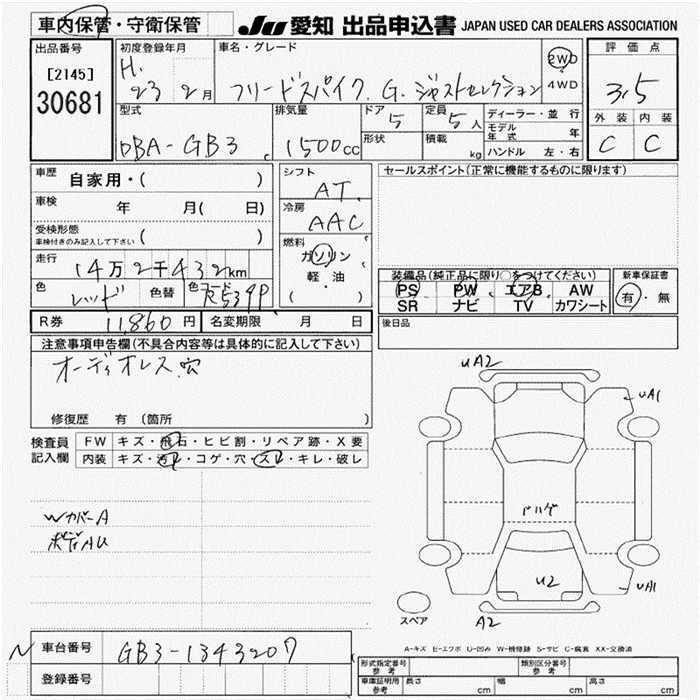 車内保管・守衛保管
JU 愛知 出品申込書 JAPAN USED CAR DEALERS ASSOCIATION
出品番号
[2145]
30681
初度登録年月
H.
23 2月
車名・グレード
フリードスパイク. G. ジャストセレクション
2WD
4WD
評価点
3.5
外装 内装
C C
型式
DBA-GB3
排気量
1500cc
ドア
5
形状
定員
5人
積載
kg
ディーラー・並行
モデル年式 年
ハンドル 左・右
車歴
自家用・( )
車検
年 月( 日)
受検形態
車検付きのみ記入して下さい ( )
走行
14万2千432km
色
レッド
色替
色コード
R539P
シフト
AT.
冷房
AAC
燃料
ガソリン
軽・油
( )
セールスポイント(正常に機能するものに限ります)
装備品(純正品に限り○をつけてください)
PS PW エアB AW
SR ナビ TV カワシート
新車保証書
有・無
R券 11,860円
名変期限 月 日
後日品
注意事項申告欄(不具合内容等は具体的に記入して下さい)
オーディオレス.穴
修復歴 有 (箇所 )
検査員
記入欄
FW キズ・飛石・ヒビ割・リペア跡・X要
内装 キズ・汚れ・コゲ・穴・スレ・キレ・破レ
WカバーA
ボディAU
UA2
UA1
ハゲ
U2
UA1
A2
スペア
A-キズ E-エクボ U-凹み W-補修跡 S-サビ C-腐食 XX-交換済
N
車台番号 GB3-1343207
登録番号
形式指定番号
参考
類別区分番号
参考
車庫証明用
参考
長さ cm 幅 cm 高さ cm